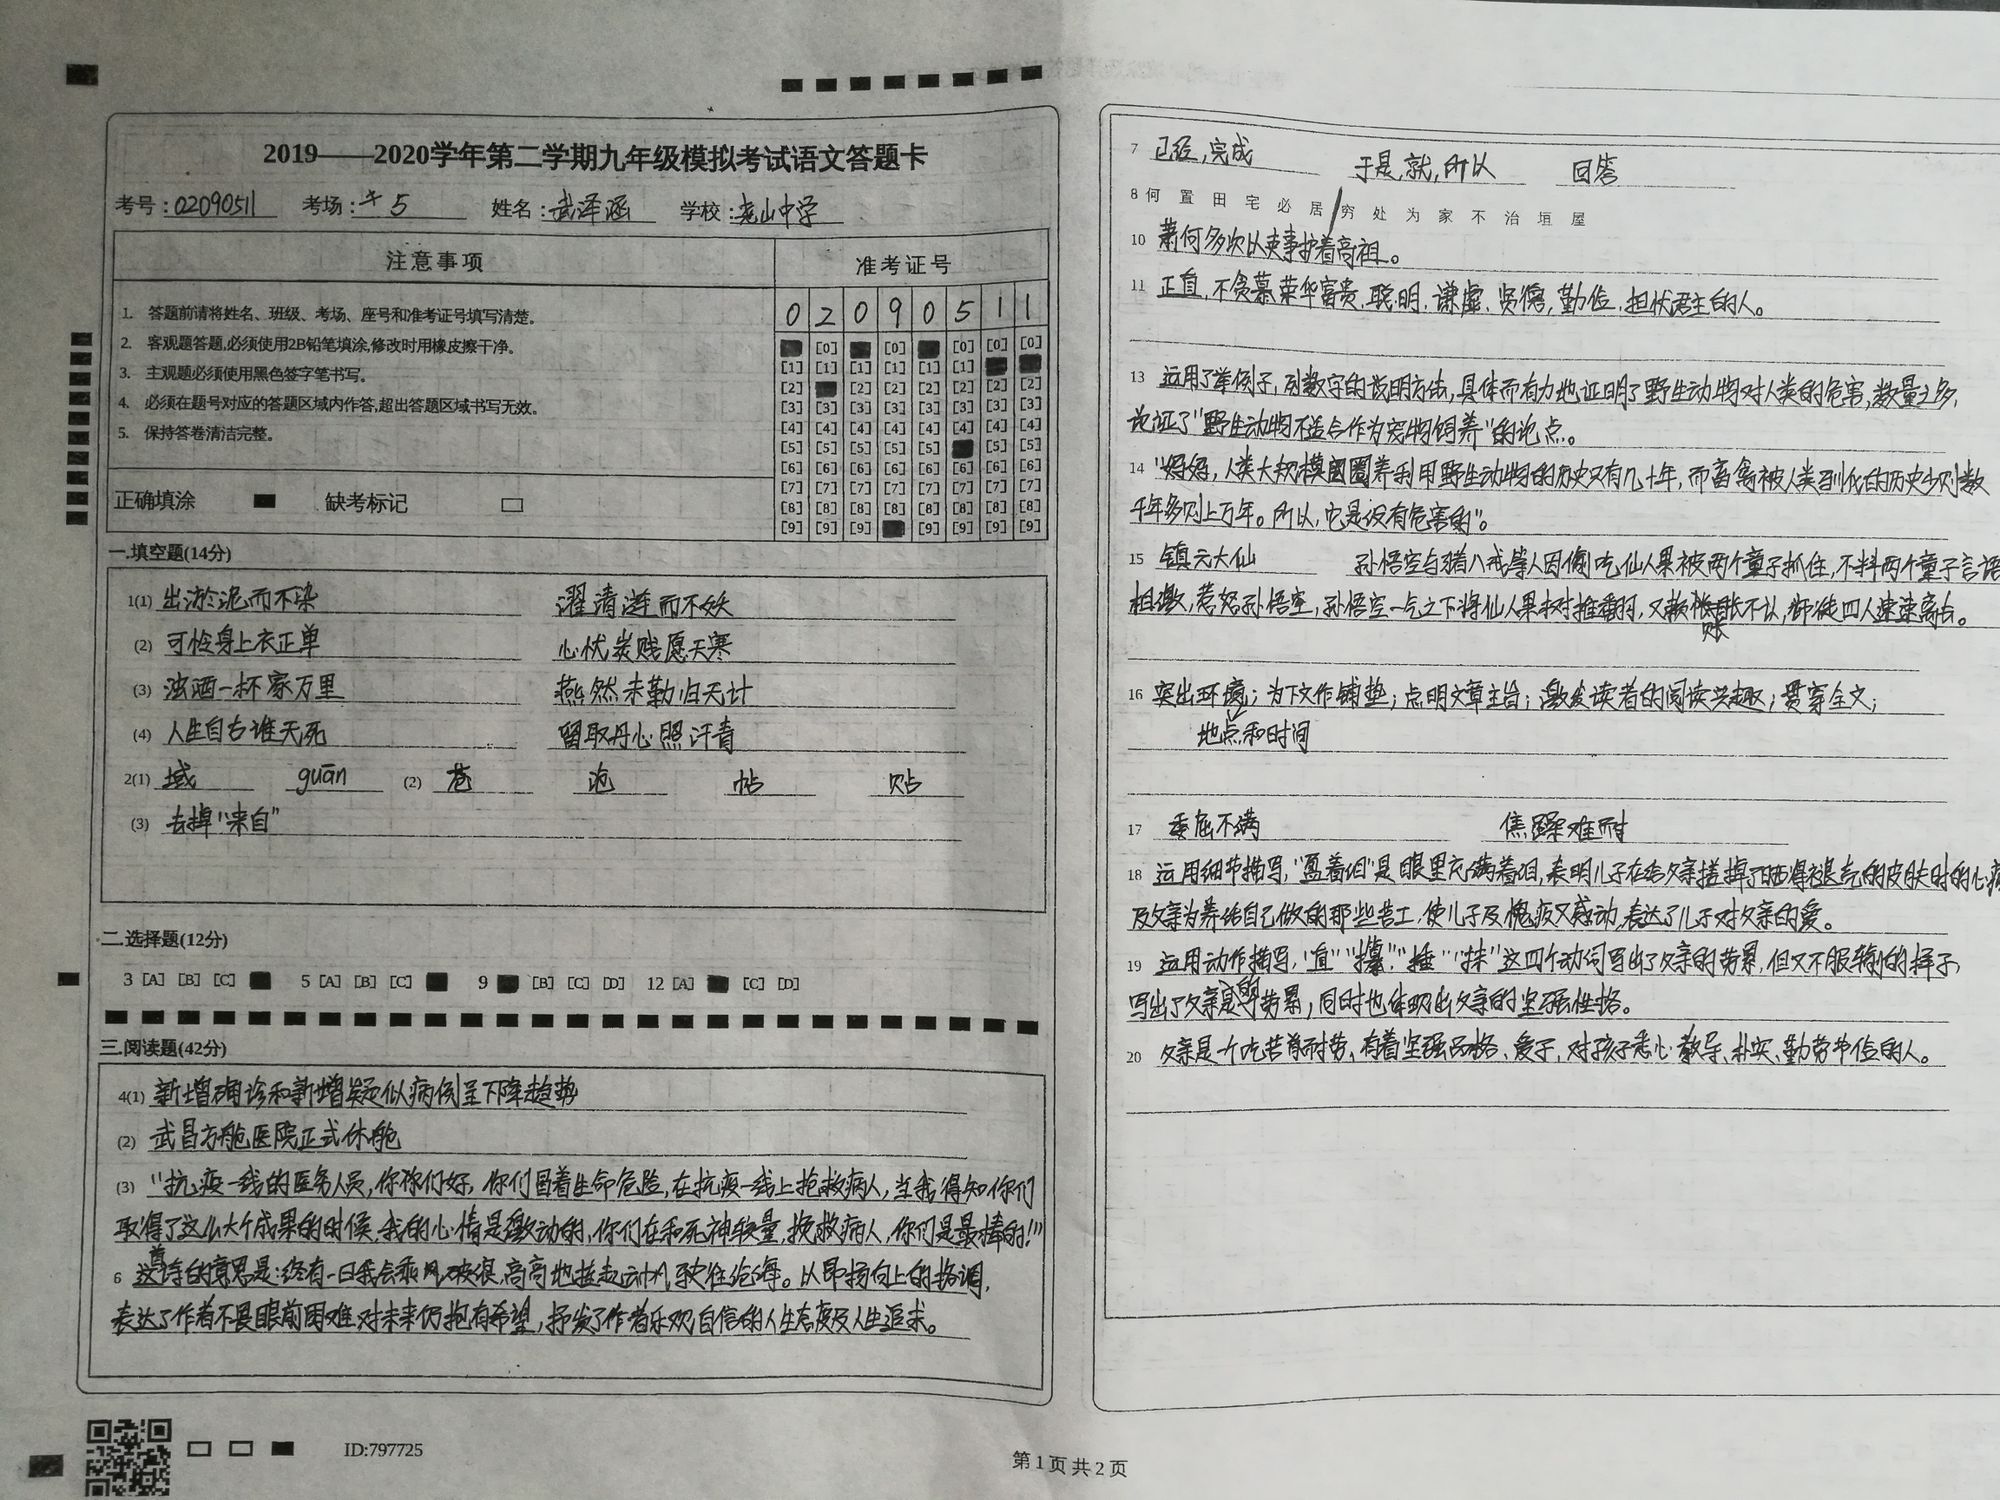 2019——2020学年第二学期九年级模拟考试语文答题卡
考号：02090511 考场：5 姓名：武泽涵 学校：尧山中学
注意事项
准考证号
0 2 0 9 0 5 1 1
1. 答题前请将姓名、班级、考场、座号和准考证号填写清楚。
2. 客观题答题,必须使用2B铅笔填涂,修改时用橡皮擦干净。
3. 主观题必须使用黑色签字笔书写。
4. 必须在题号对应的答题区域内作答,超出答题区域书写无效。
5. 保持答卷清洁完整。
[0] [0] [0] [0]
[1] [1] [1] [1] [1] [1]
[2] [2] [2] [2] [2] [2] [2]
[3] [3] [3] [3] [3] [3] [3] [3]
[4] [4] [4] [4] [4] [4] [4] [4]
[5] [5] [5] [5] [5] [5] [5]
[6] [6] [6] [6] [6] [6] [6] [6]
[7] [7] [7] [7] [7] [7] [7] [7]
[8] [8] [8] [8] [8] [8] [8] [8]
[9] [9] [9] [9] [9] [9] [9]
正确填涂 缺考标记
一.填空题(14分)
1(1) 出淤泥而不染 濯清涟而不妖
(2) 可怜身上衣正单 心忧炭贱愿天寒
(3) 浊酒一杯家万里 燕然未勒归无计
(4) 人生自古谁无死 留取丹心照汗青
2(1) 域 guān (2) 苍 沧 帖 贴
(3) 去掉"来自"
二.选择题(12分)
3 [A] [B] [C] 5 [A] [B] [C] 9 [B] [C] [D] 12 [A] [C] [D]
三.阅读题(42分)
4(1) 新增确诊和新增疑似病例呈下降趋势
(2) 武昌方舱医院正式休舱
(3) "抗疫一线的医务人员,你们好,你们冒着生命危险,在抗疫一线上抢救病人,当我得知你们
取得了这么大个成果的时候,我的心情是激动的,你们在和死神较量,挽救病人,你们是最棒的!"
6 这首诗的意思是:终有一日我会乘风破浪,高高地挂起云帆驶往沧海。以昂扬向上的格调,
表达了作者不畏眼前困难对未来仍抱有希望,抒发了作者乐观自信的人生态度及人生追求。
ID:797725
7 已经,完成 于是,就,所以 回答
8 何 置 田 宅 必 居 / 穷 处 为 家 不 治 垣 屋
10 萧何多次以吏事护着高祖。
11 正直,不贪慕荣华富贵,聪明,谦虚,贤德,勤俭,担忧君主的人。
13 运用了举例子,列数字的说明方法,具体而有力地证明了野生动物对人类的危害,数量之多,
论证了"野生动物不适合作为宠物饲养"的论点。
14 "妈妈,人类大规模圈养利用野生动物的历史只有几十年,而畜禽被人类驯化的历史少则数
千年多则上万年。所以,它是没有危害的"。
15 镇元大仙 孙悟空与猪八戒等人因偷吃仙人果被两个童子抓住,不料两个童子言语
相激,惹怒孙悟空,孙悟空一气之下将仙人果树推翻,又赖账不认,师徒四人速速离去。
16 突出环境;为下文作铺垫;点明文章主旨;激发读者的阅读兴趣;贯穿全文;
地点和时间
17 委屈不满 焦躁难耐
18 运用细节描写,"盈着泪"是眼里充满着泪,表明儿子在给父亲搓掉了晒得褪壳的皮肤时的心疼
及父亲为养给自己做的那些苦工,使儿子及愧疚又感动,表达了儿子对父亲的爱。
19 运用动作描写,"直""攥""捶""抹"这四个动词写出了父亲的劳累,但又不服输的样子,
写出了父亲的劳累,同时也体现出父亲的坚强性格。
20 父亲是一个吃苦耐劳、有着坚强品格、爱子,对孩子悉心教导、朴实、勤劳节俭的人。
第 1 页 共 2 页